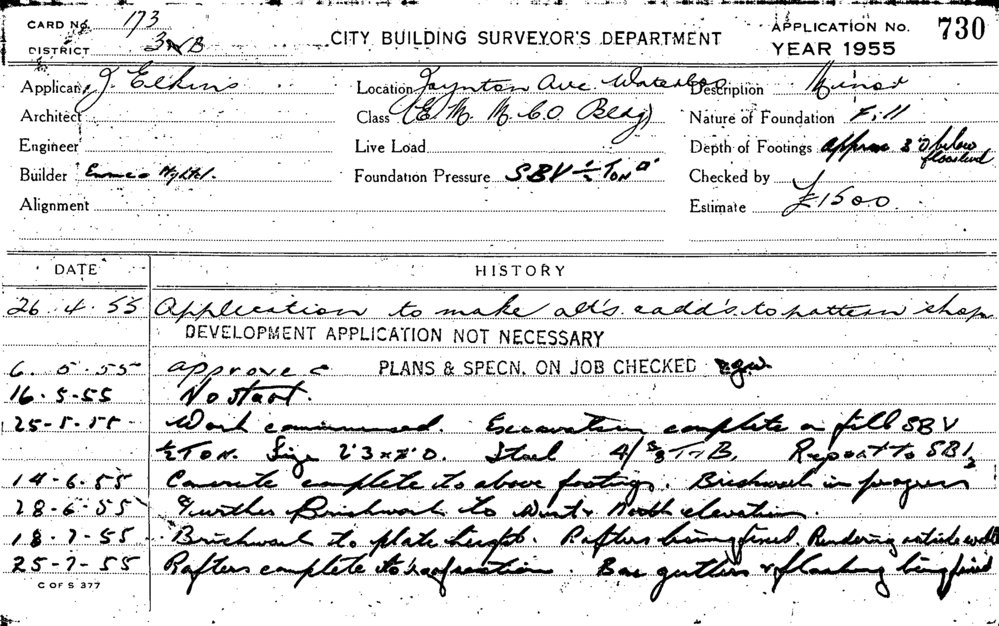 CARD No. 173
DISTRICT
CITY BUILDING SURVEYOR'S DEPARTMENT
APPLICATION No. 730
YEAR 1955
Applicant J. Elkins
Location Joynton Ave. Waterloo
Description Minor
Architect
Class (E. M. M. C. O Bldg)
Nature of Foundation Fill
Engineer
Live Load
Depth of Footings approx 3'0 below
floor level
Builder
Foundation Pressure SBV ½ Ton □'
Checked by
Alignment
Estimate £1500
DATE HISTORY
26.4.55 Application to make alt's. & add's. to pattern shop
DEVELOPMENT APPLICATION NOT NECESSARY
6.5.55 approved PLANS & SPECN. ON JOB CHECKED
16-5-55 No start.
25-5-55 Work commenced. Excavation complete on fill SBV
½ TON. Size 2'3 x 2'0. Steel 4/ T & B. Report to SBI
14-6-55 Concrete complete to above footings. Brickwork in progress
28-6-55 Further Brickwork to West & North elevation.
18-7-55 Brickwork to plate height. Rafters being fixed. Rendering outside walls
25-7-55 Rafters complete to roof section. Box gutters & flashing being fixed
C OF S 377